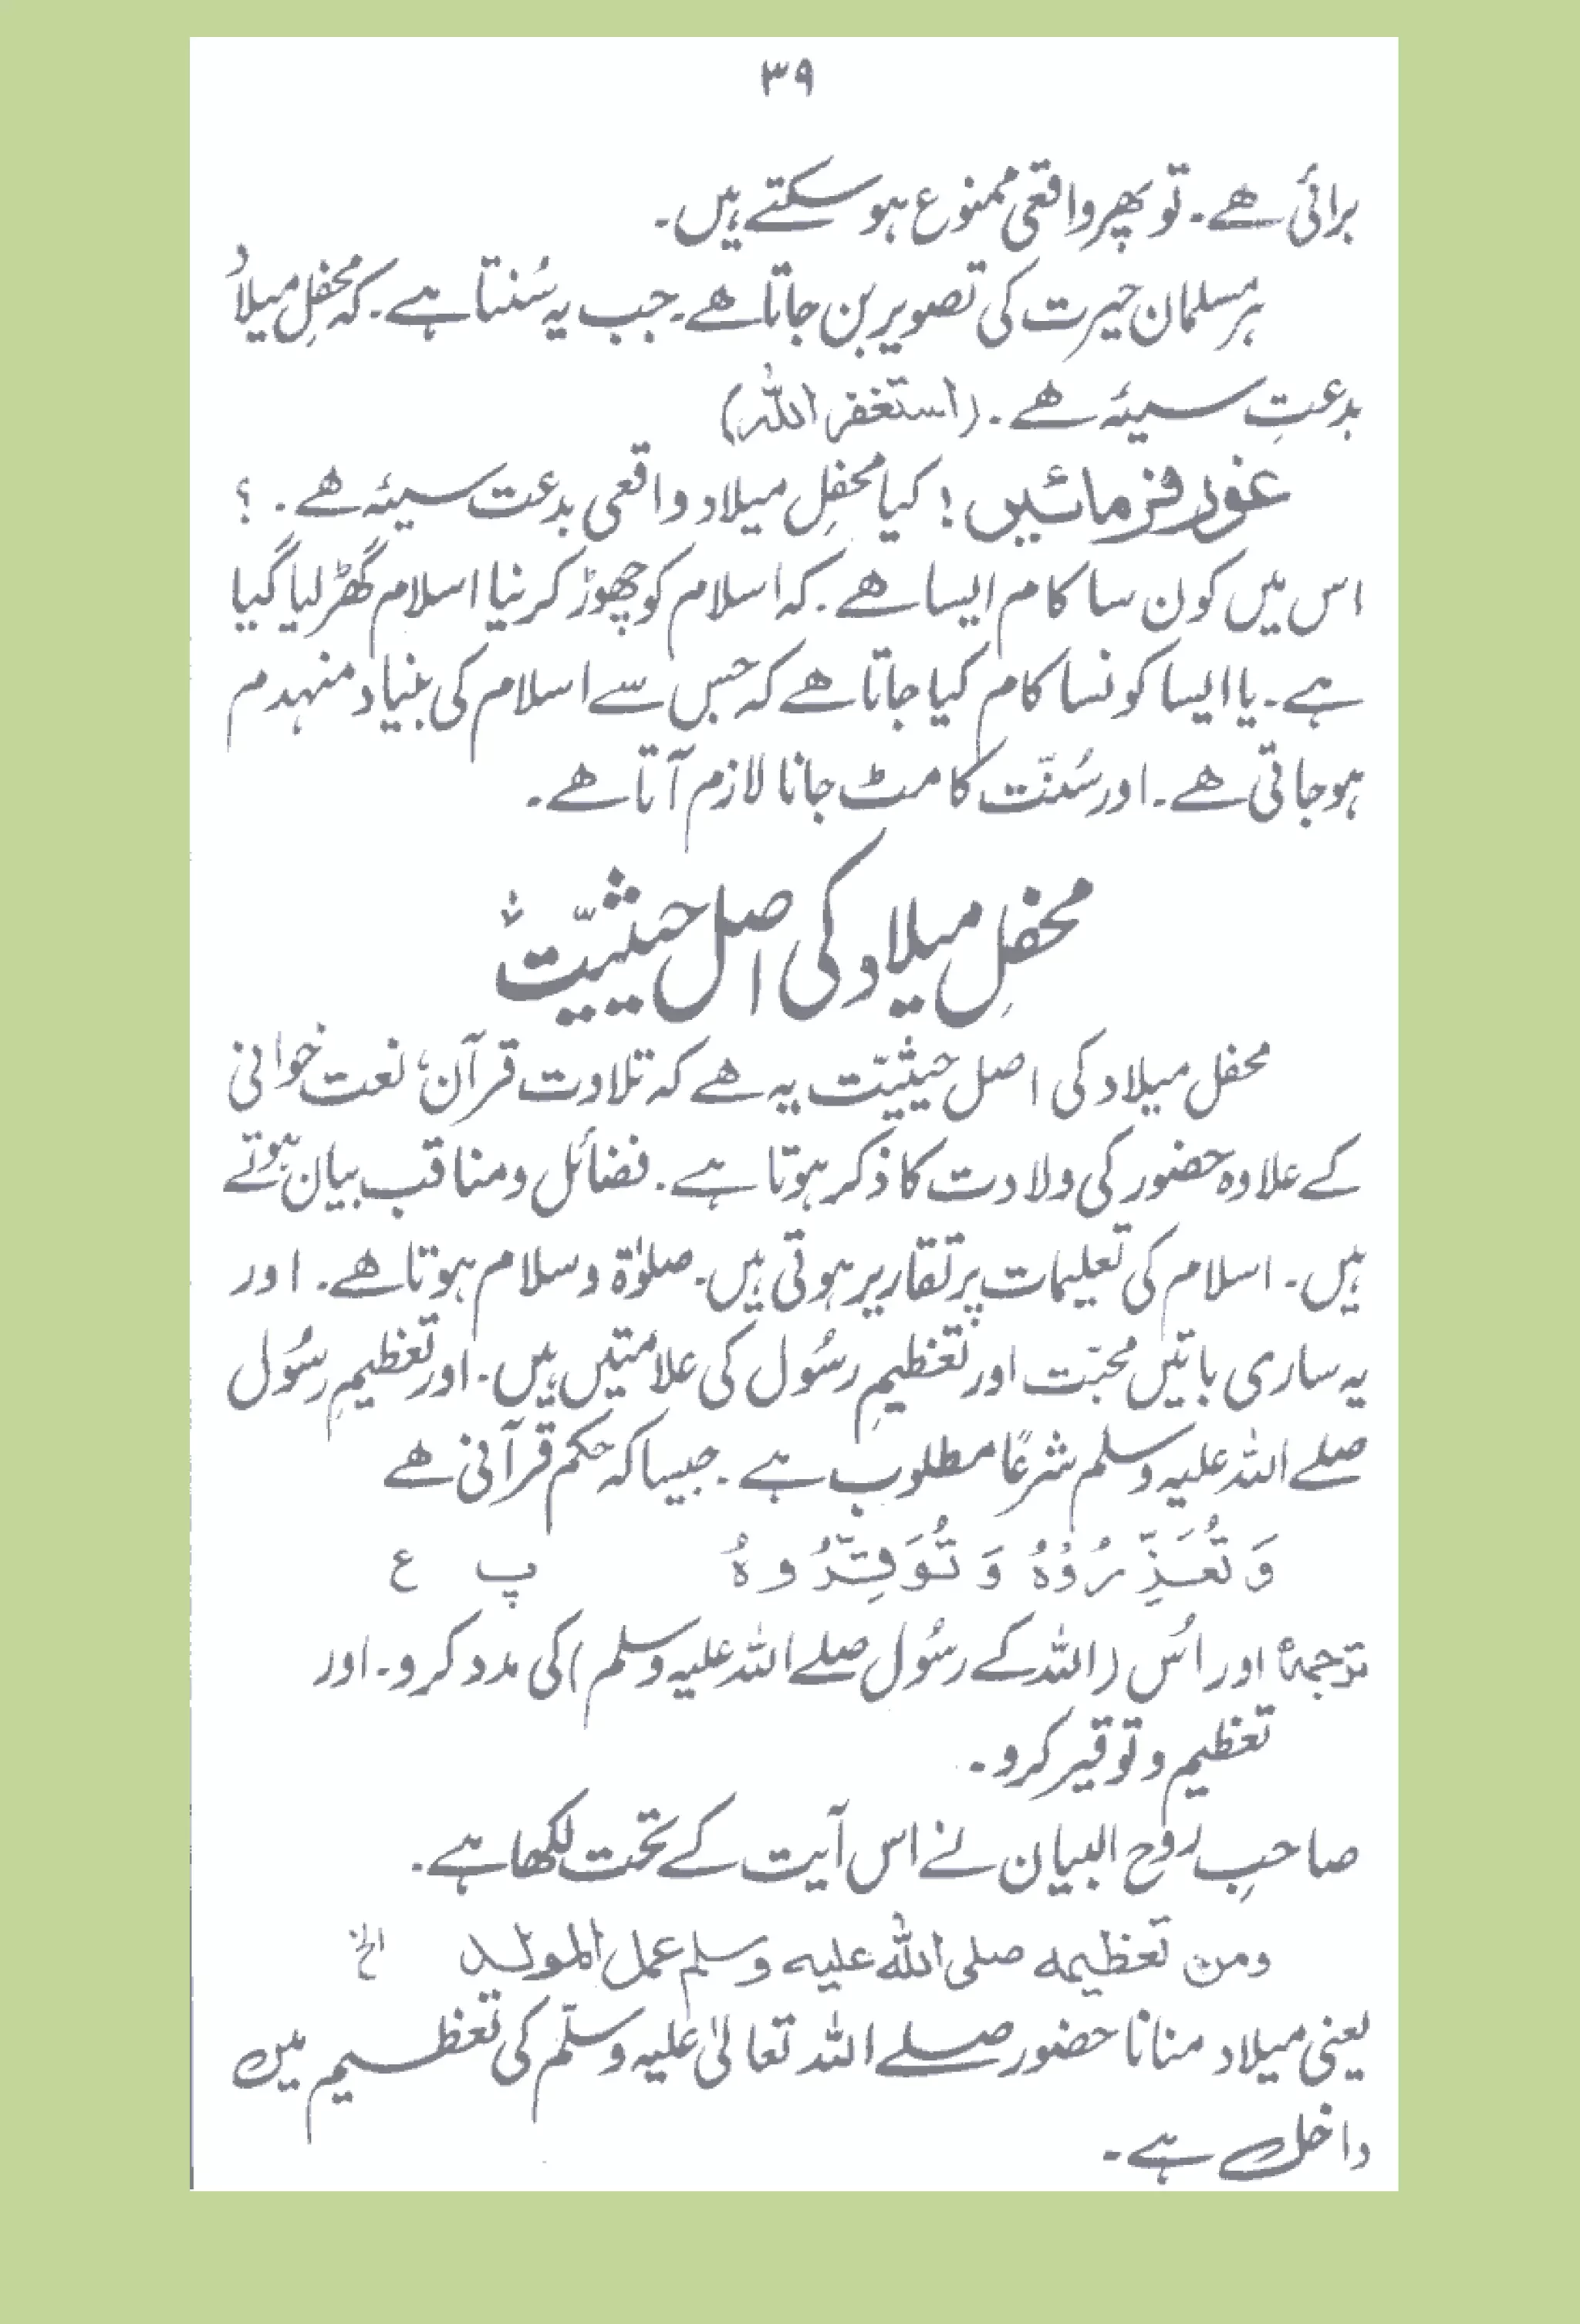 ۳۹
برائی ھے۔ تو پھر واقعی ممنوع ہو سکتے ہیں۔
ہر مسلمان حیرت کی تصویر بن جاتا ھے۔ جب یہ سُنتا ہے۔ کہ محفلِ میلاد
بدعتِ سیئہ ھے۔ (استغفر اللہ)
غور فرمائیں! کیا محفلِ میلاد واقعی بدعت سیئہ ھے۔ ؟
اس میں کون سا کام ایسا ھے۔ کہ اسلام کو چھوڑ کر نیا اسلام گھڑ لیا گیا
ہے۔ یا ایسا کونسا کام کیا جاتا ھے کہ جس سے اسلام کی بنیاد منہدم
ہو جاتی ھے۔ اور سُنّت کا مٹ جانا لازم آتا ھے۔
محفلِ میلاد کی اصل حیثیّت
محفل میلاد کی اصل حیثیّت یہ ھے کہ تلاوت قرآن، نعت خوانی
کے علاوہ حضور کی ولادت کا ذکر ہوتا ہے۔ فضائل و مناقب بیان ہوتے
ہیں۔ اسلام کی تعلیمات پر تقاریر ہوتی ہیں۔ صلوٰۃ و سلام ہوتا ھے۔ اور
یہ ساری باتیں محبّت اور تعظیمِ رسُول کی علامتیں ہیں۔ اور تعظیمِ رسُول
صلے اللہ علیہ وسلم شرعًا مطلوب ہے۔ جیسا کہ حکم قرآنی ھے
وَ تُعَذِّرُوْهُ وَ تُوَقِّرُوهُ پ ع
ترجمہ اور اُس (اللہ کے رسُول صلے اللہ علیہ وسلم) کی مدد کرو۔ اور
تعظیم و توقیر کرو۔
صاحبِ روح البیان نے اس آیت کے تحت لکھا ہے۔
ومن تعظیمه صلی اللہ علیه وسلم عمل المولد الخ
یعنی میلاد منانا حضور صلے اللہ تعالیٰ علیہ وسلّم کی تعظیم میں
داخل ہے۔